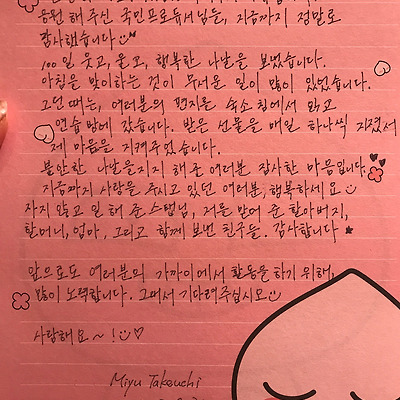 응원 해 주신 국민프로듀서님들, 지금까지 정말로
감사했습니다
100일 웃고, 울고, 행복한 나날을 보냈습니다.
아침을 맞이하는 것이 무서운 일이 많이 있었습니다.
그런 때는, 여러분의 편지를 숙소 침에서 읽고
연습 밤에 갔습니다. 받은 선물을 매일 하나씩 지켰서
제 마음을 지켜주었습니다.
불안한 나날을지지 해준 여러분 감사한 마음입니다.
지금까지 사랑을 주시고 있던 여러분, 행복하세요
자지 않고 일 해 준 스탭님, 저를 말여 준 할아버지,
할머니, 엄마, 그리고 함께 보낸 친구들. 감사합니다
앞으로도 여러분의 가까이에서 활동을 하기 위해,
많이 노력합니다. 그래서 기다려주십시오
사랑해요~!
Miyu Takeuchi